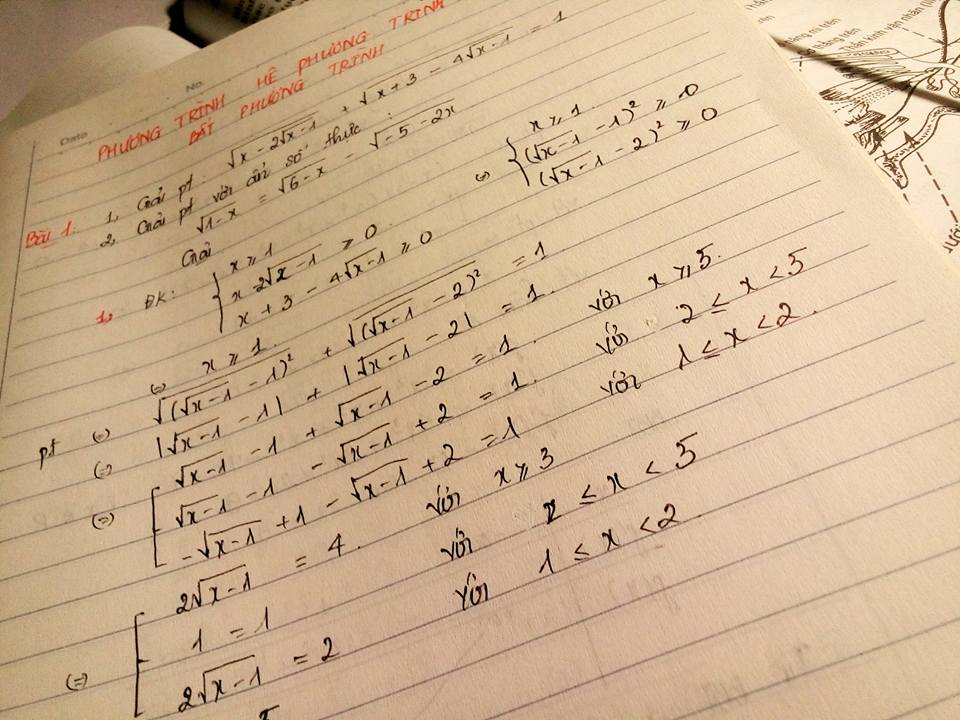 Date
No.
PHƯƠNG TRÌNH HỆ PHƯƠNG TRÌNH
BẤT PHƯƠNG TRÌNH
Bài 1. 1, Giải pt: √(x - 2√(x-1)) + √(x + 3 - 4√(x-1)) = 1
2, Giải pt với ẩn số thực:
√(1-x) = √(6-x) - √(-5-2x)
Giải
1, ĐK: { x ≥ 1
x - 2√(x-1) ≥ 0
x + 3 - 4√(x-1) ≥ 0
(=) { x ≥ 1
(√(x-1) - 1)² ≥ 0
(√(x-1) - 2)² ≥ 0
(=) x ≥ 1.
pt (=) √((√(x-1) - 1)²) + √((√(x-1) - 2)²) = 1
(=) |√(x-1) - 1| + |√(x-1) - 2| = 1.
(=) [ √(x-1) - 1 + √(x-1) - 2 = 1. với x ≥ 5.
√(x-1) - 1 - √(x-1) + 2 = 1. với 2 ≤ x < 5
-√(x-1) + 1 - √(x-1) + 2 = 1 với 1 ≤ x < 2.
(=) [ 2√(x-1) = 4. với x ≥ 3
1 = 1 với 2 ≤ x < 5
2√(x-1) = 2 với 1 ≤ x < 2.